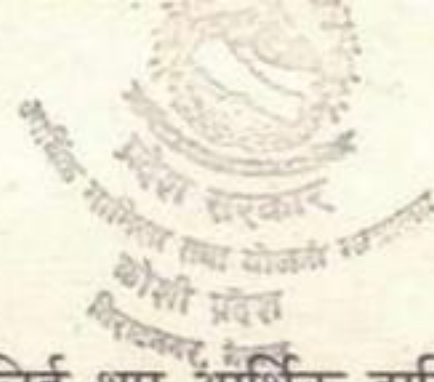 प्रदेश सरकार
आर्थिक मामिला तथा योजना मन्त्रालय
कोशी प्रदेश
विराटनगर, नेपाल
आर्थिक